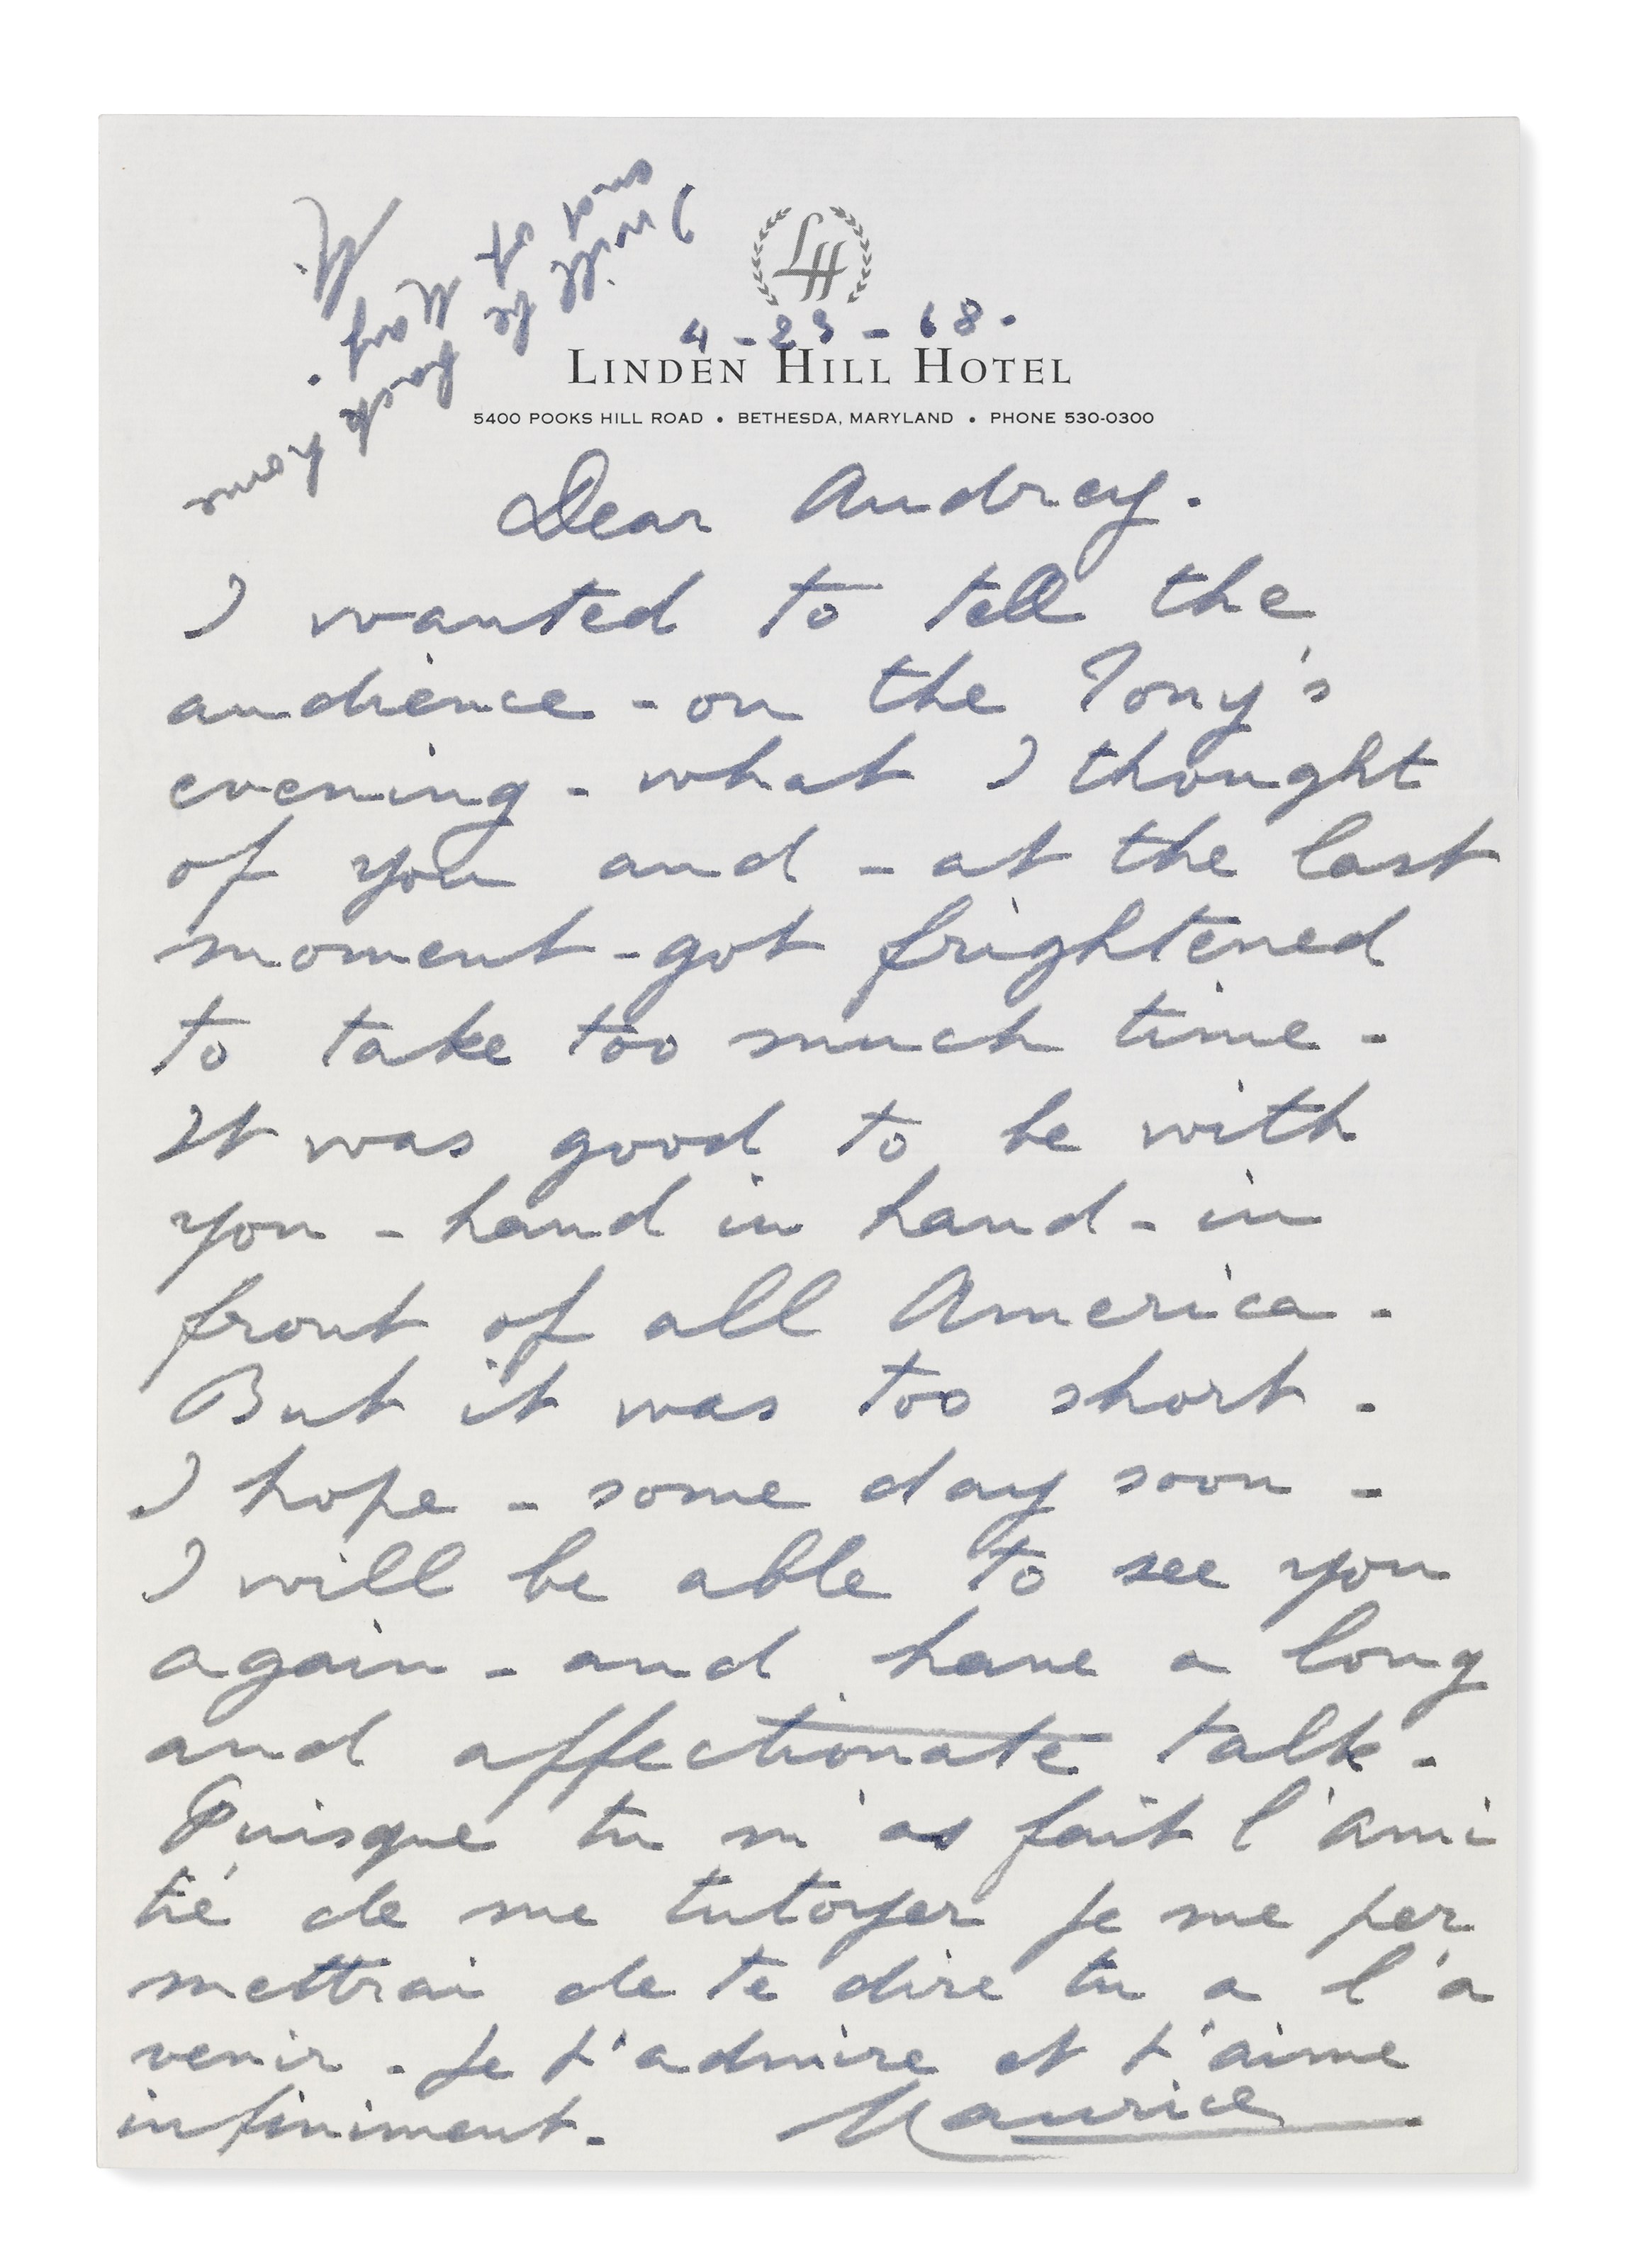 LH
4-23-68.
LINDEN HILL HOTEL
5400 POOKS HILL ROAD • BETHESDA, MARYLAND • PHONE 530-0300
Dear Audrey.
I wanted to tell the
audience - on the Tony's
evening - what I thought
of you and - at the last
moment - got frightened
to take too much time -
It was good to be with
you - hand in hand - in
front of all America.
But it was too short.
I hope - some day soon -
I will be able to see you
again - and have a long
and affectionate talk.
Puisque tu m'as fait l'ami
tié de me tutoyer je me per
mettrai de te dire tu a l'a
venir - Je t'admire et t'aime
infiniment. Maurice
I will be back home
end of May.
M.